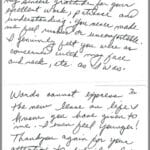 my sincere gratitude for your
excellent work, patience and
understanding! You never made
me feel rushed or uncomfortable.
I genuinely feel you were as
concerned with my face
and neck, etc as I was.
Words cannot express
the new lease on life I
know you have given to
me. I even feel younger!
Thank you again for your